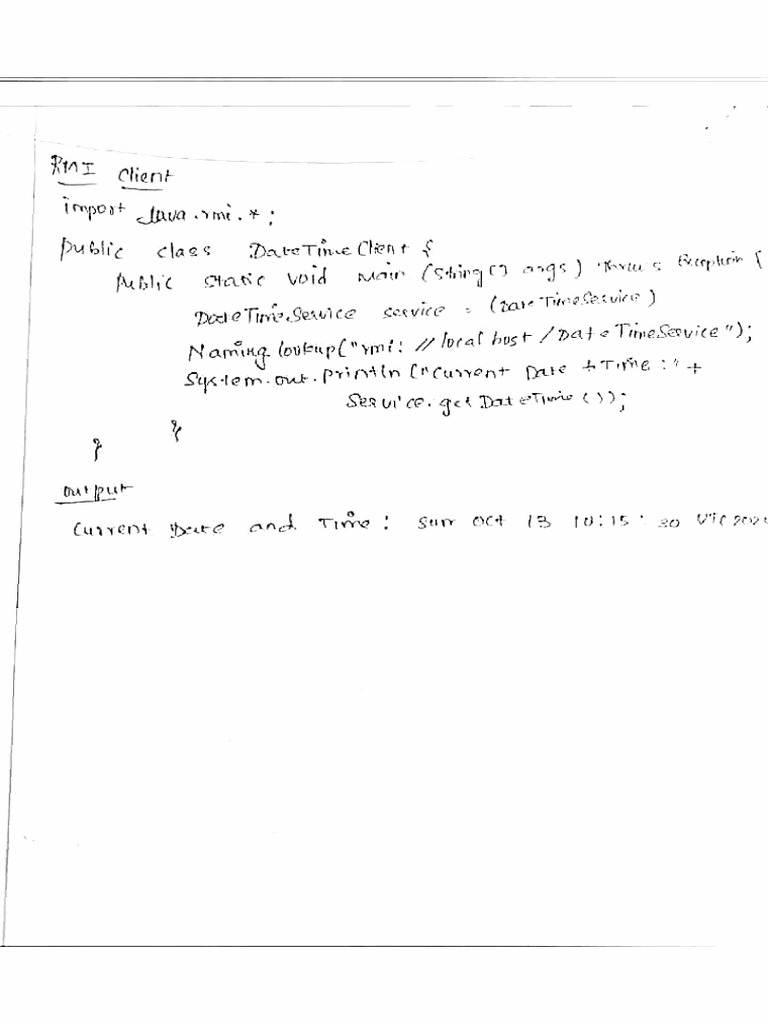 RMI Client
import Java.rmi.*;
public class DateTimeClient {
public static void main (String[] args) throws Exception {
DateTimeService service = (DateTimeService)
Naming.lookup("rmi://localhost/DateTimeService");
System.out.println ("Current Date + Time :" +
Service.getDateTime());
}
}
output
Current Date and Time: Sun Oct 13 10:15: